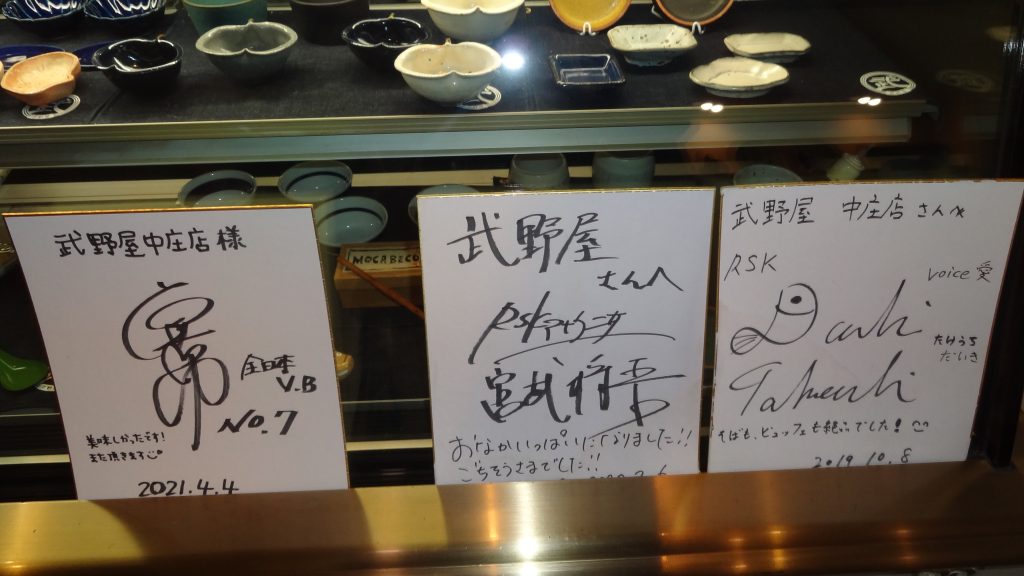 武野屋中庄店様
全日本
V.B
No.7
美味しかったです!
また頂きます
2021.4.4
MOCABECO
武野屋
さんへ
RSKアナウンサー
宮武将吾
おなかいっぱいになりました!!
ごちそうさまでした!!
武野屋 中庄店さんへ
RSK
voice愛
Daiki
たけうち
だいき
Takeuchi
そばも、ビュッフェも絶品でした!
2019.10.8